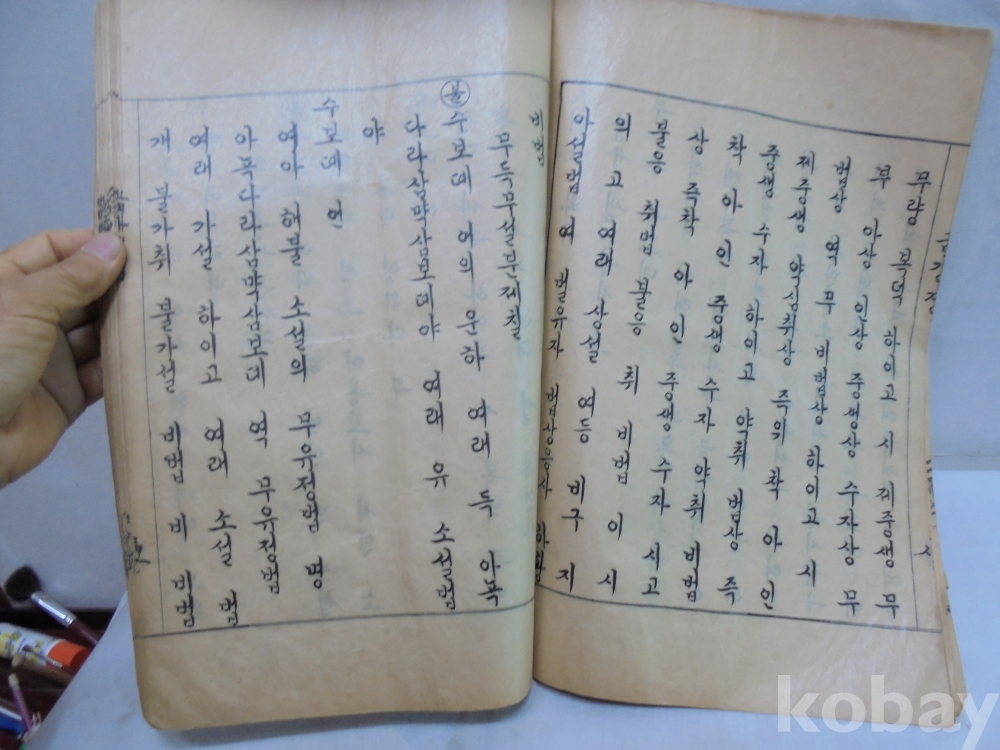 무량 복덕 하이고 시 제중생 무
부 아상 인상 중생상 수자상 무
법상 역 무 비법상 하이고 시
제중생 약심취상 즉위 착 아 인
중생 수자 하이고 약취 법상 즉
착 아 인 중생 수자 약취 비법
상 즉착 아 인 중생 수자 시고
불응 취법 불응 취 비법 이 시
의 고 여래 상설 여등 비구 지
아설법 여 벌유자 법상응사 하황
비법
무득무설분제칠
불
수보데 어의 운하 여래 득 아뇩
다라삼먁삼보데야 여래 유 소설법
야
수보데 언
여아 해불 소설의 무유정법 명
아뇩다라삼먁삼보데 역 무유정법
여래 가설 하이고 여래 소설 법
개 불가취 불가설 비법 비 비법
kobay